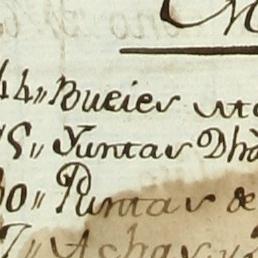 44,, Bueies
5,, Yuntas Dhà
0,, Puntas de
7,, Achas